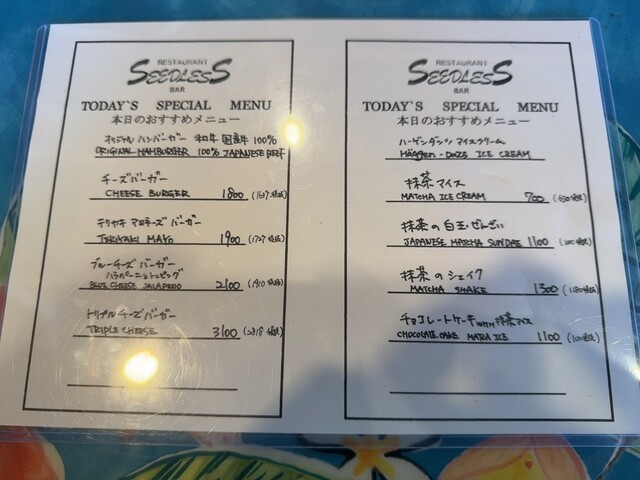 RESTAURANT
SEEDLESS
BAR
TODAY`S SPECIAL MENU
本日のおすすめメニュー
オリジナル ハンバーガー 和牛 国産牛 100%
ORIGINAL HAMBURGER 100% JAPANESE BEEF
チーズバーガー
CHEESE BURGER 1800 (1637税抜)
テリヤキ マヨチーズ バーガー
TERIYAKI MAYO 1900 (1727税抜)
ブルーチーズ バーガー
ハラペーニョトッピング
BLUE CHEESE JALAPEÑO 2100 (1910税抜)
トリプルチーズバーガー
TRIPLE CHEESE 3100 (2818税抜)
RESTAURANT
SEEDLESS
BAR
TODAY`S SPECIAL MENU
本日のおすすめメニュー
ハーゲンダッツ アイスクリーム
Häagen-Dazs ICE CREAM
抹茶アイス
MATCHA ICE CREAM 700
抹茶の白玉ぜんざい
JAPANESE MATCHA SUNDAE 1100
抹茶のシェイク
MATCHA SHAKE 1300
チョコレートケーキ WITH 抹茶アイス
CHOCOLATE CAKE ICE 1100